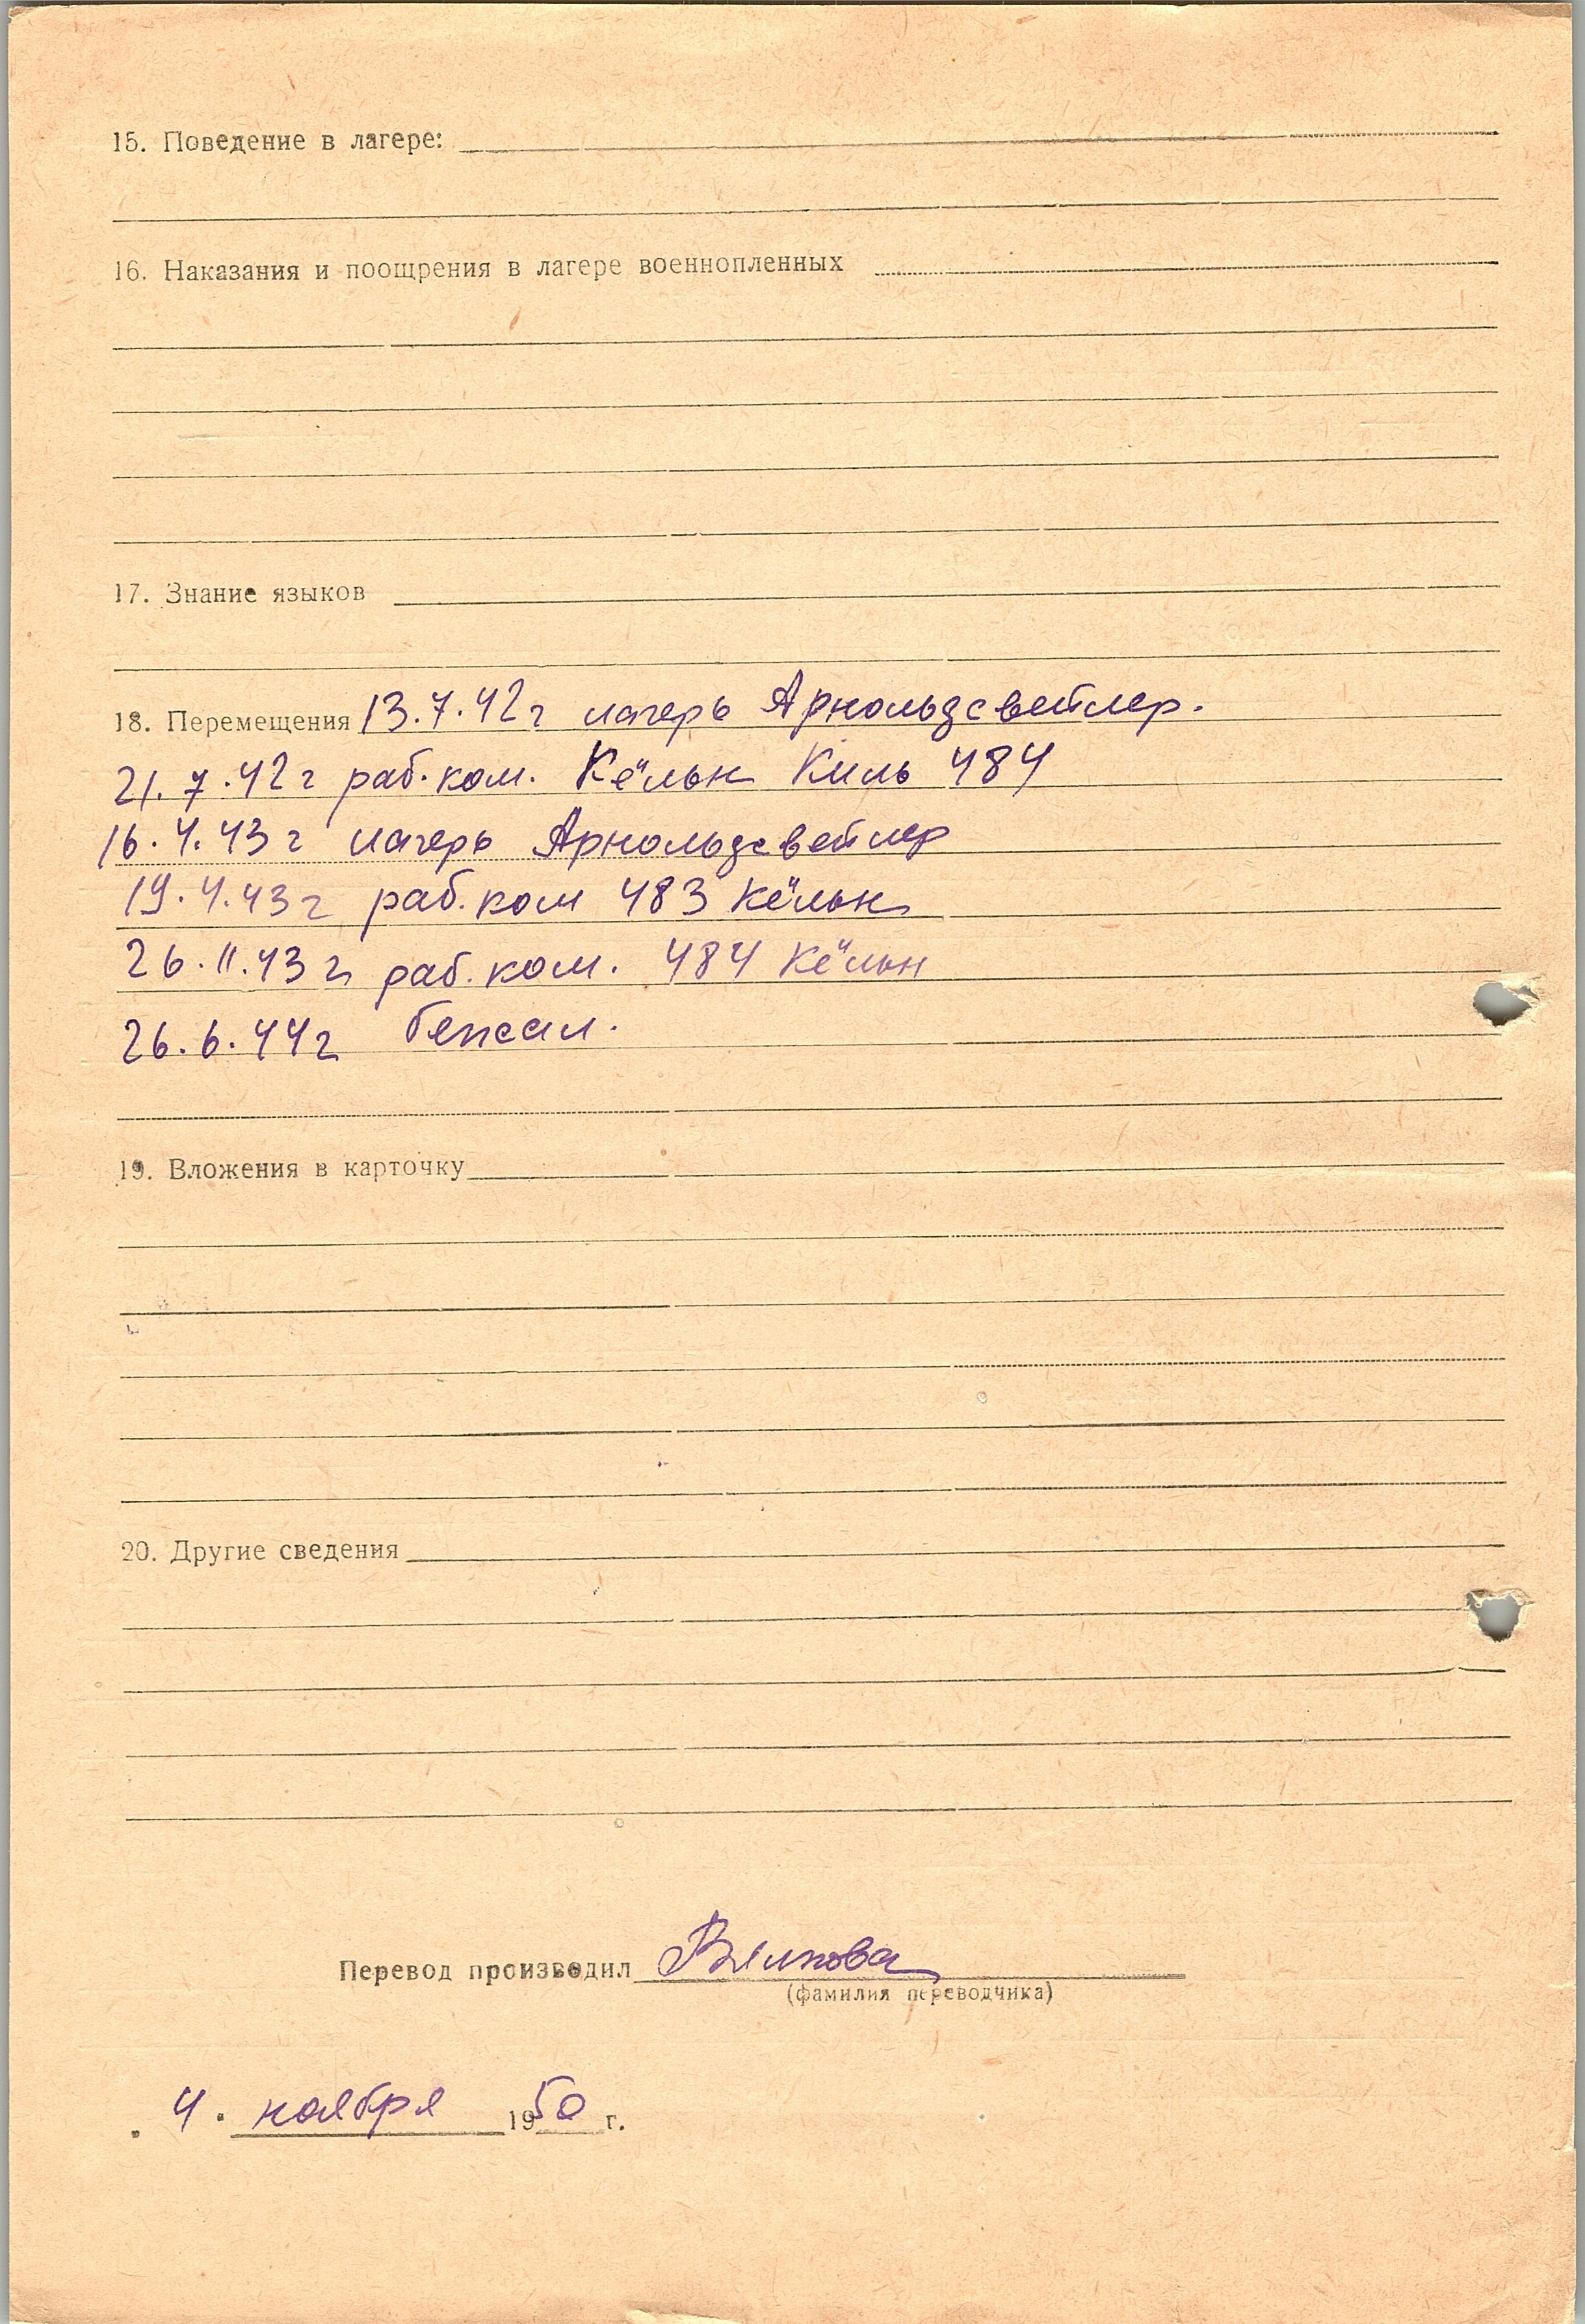 15. Поведение в лагере:
16. Наказания и поощрения в лагере военнопленных
17. Знание языков
18. Перемещения 13.7.42г лагерь Арнольдсвейлер.
21.7.42г раб.ком. Кёльн Киль 484
16.4.43г лагерь Арнольдсвейлер
19.4.43г раб.ком 483 Кёльн
26.11.43г раб.ком. 484 Кёльн
26.6.44г
19. Вложения в карточку
20. Другие сведения
Перевод производил
(фамилия переводчика)
4. ноября 1950 г.